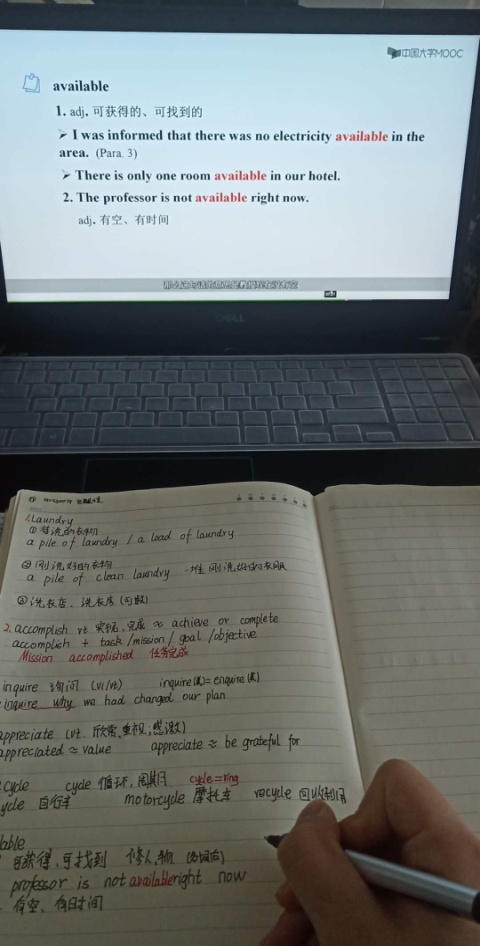 中国大学MOOC
available
1. adj. 可获得的、可找到的
➢ I was informed that there was no electricity available in the
area. (Para. 3)
➢ There is only one room available in our hotel.
2. The professor is not available right now.
adj. 有空、有时间
DELL
1. Laundry
① 待洗的衣物
a pile of laundry / a load of laundry
② 刚洗好的衣物
a pile of clean laundry 一堆刚洗好的衣服
③ 洗衣店、洗衣房 (可数)
2. accomplish vt 实现、完成 ≈ achieve or complete
accomplish + task/mission/goal/objective
Mission accomplished 任务完成
inquire 询问 (vi/vt) inquire(美)=enquire(英)
inquire why we had changed our plan
appreciate (vt. 欣赏,重视;感激)
appreciated ≈ value appreciate ≈ be grateful for
cycle cycle 循环,周期 cycle=ring
ycle 自行车 motorcycle 摩托车 recycle 回收利用
lable
可获得,可找到 修人,物
professor is not available right now
有空、有时间